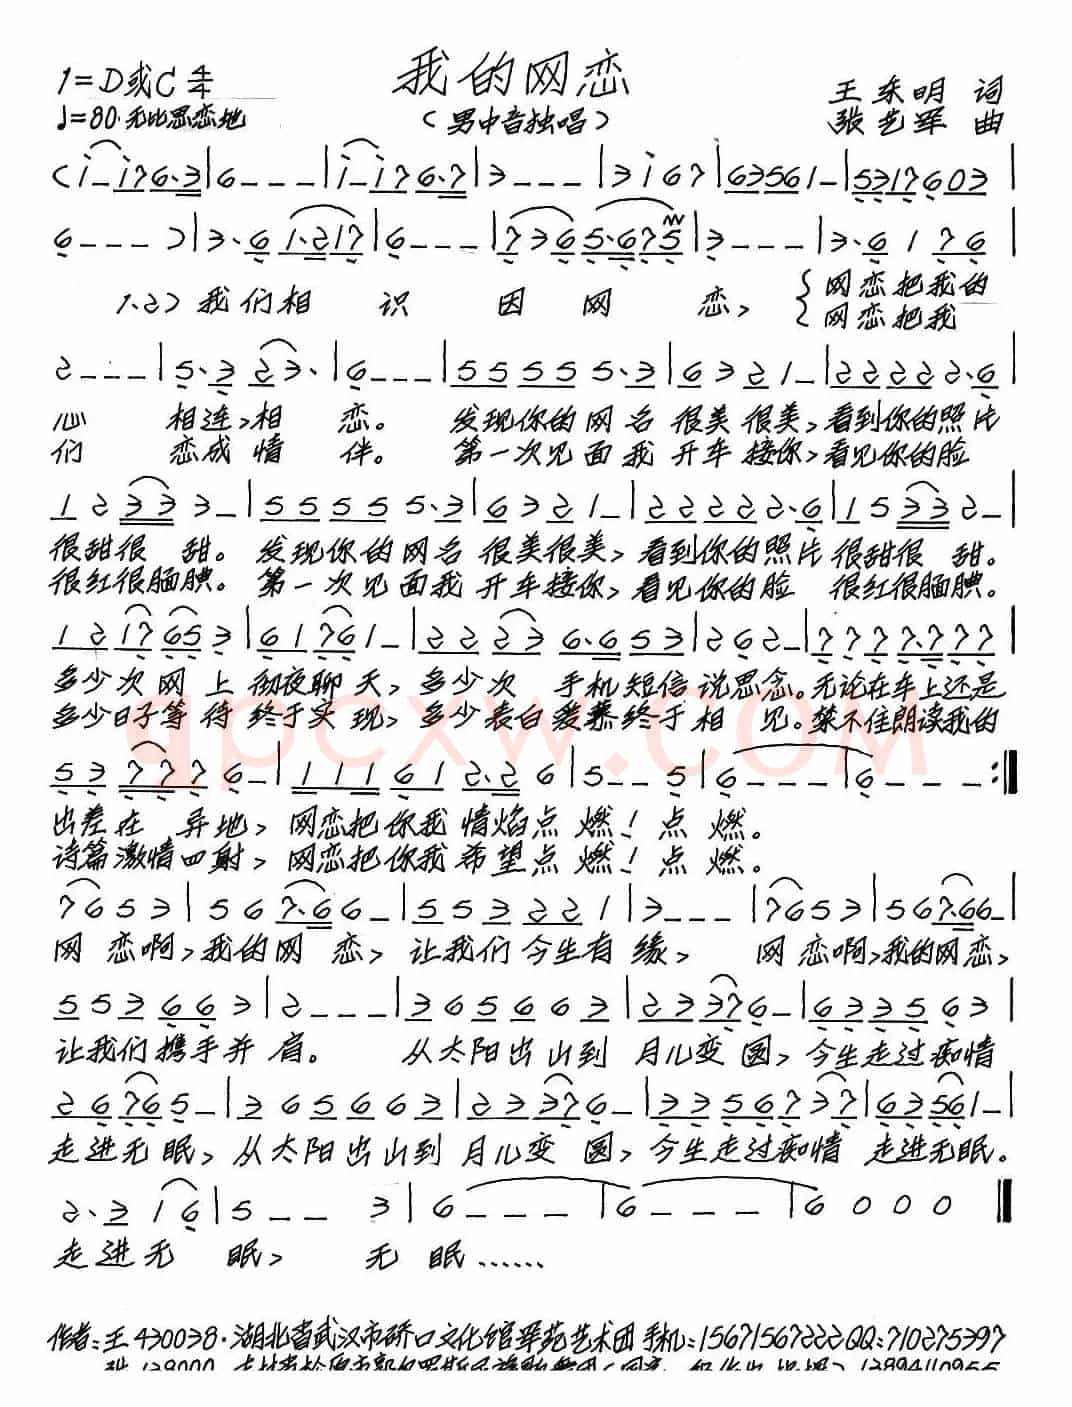 1=D或C 4/4
我的网恋
王东明 词
♩=80·无比思恋地
(男中音独唱)
张艺军 曲
(i－i76·3|6－－－|i－i76·7|3－－－|3i67|63561－|5317603|
6－－－)|3·61·217|6－－－|7365·675|3－－－|3·6176|
1.2)我们相 识 因 网 恋,{网恋把我的
网恋把我
2－－－|5·323·|6－－－|555555·3|6321－|222222·6|
心 相连,相 恋。 发现你的网名 很美很美,看到你的照片
们 恋成情 伴。 第一次见面我 开车接你,看见你的脸
12333－|555555·3|6321－|222222·6|15332－|
很甜很 甜。 发现你的网名 很美很美,看到你的照片 很甜很 甜。
很红很腼腆。 第一次见面我 开车接你,看见你的脸 很红很腼腆。
1217653|61761－|22236·653|262－|7777·777|
多少次 网 上 彻夜聊 天,多少次 手机短信说思念。无论在车上还是
多少日子等 待 终于实 现,多少表白爱慕终于相 见。禁不住朗读我的
537776－|111612·26|5－－5|6－－－|6－－－:‖
出差在 异地,网恋把你我 情焰点 燃!点 燃。
诗篇激情四射,网恋把你我 希望点 燃!点 燃。
7653|567·66－|553221|3－－－|7653|567·66－|
网 恋啊,我的网 恋,让我们 今生有 缘、 网 恋啊,我的网恋,
553663|2－－－|365663|23376－|633563|
让我们 携手并 肩。 从太阳出山到 月儿变 圆,今生走过痴情
26765－|365663|23376－|3356737|63561－|
走进无 眠,从太阳出山到 月儿变 圆,今生走过痴情 走进无眠。
2·316|5－－3|6－－－|6－－－|6000‖
走进无 眠, 无 眠……
作者:王430038·湖北省武汉市硚口文化馆军苑艺术团手机:15671567222QQ:710275397
qpcxw.com